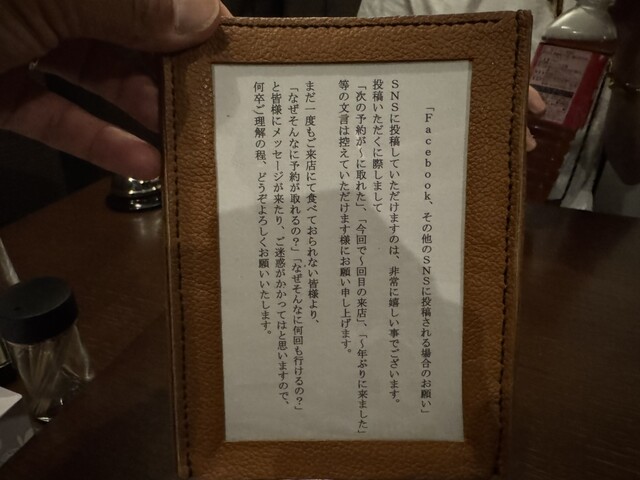 「Facebook、その他のSNSに投稿される場合のお願い」
SNSに投稿していただけますのは、非常に嬉しい事でございます。
投稿いただくに際しまして
「次の予約が〜に取れた」、「今回で〜回目の来店」、「〜年ぶりに来ました」
等の文言は控えていただけます様にお願い申し上げます。
まだ一度もご来店にて食べておられない皆様より、
「なぜそんなに予約が取れるの？」「なぜそんなに何回も行けるの？」
と皆様にメッセージが来たり、ご迷惑がかかってはと思いますので、
何卒ご理解の程、どうぞよろしくお願いいたします。